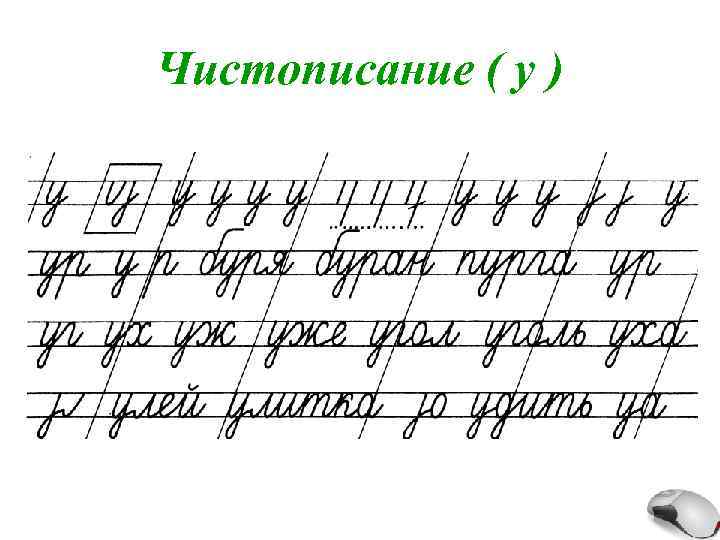 Чистописание ( у )
у у у у у у у у у у
ур у р буря буран пурга ур
уг ух уж уже угол уголь уха
улей улитка удить уа